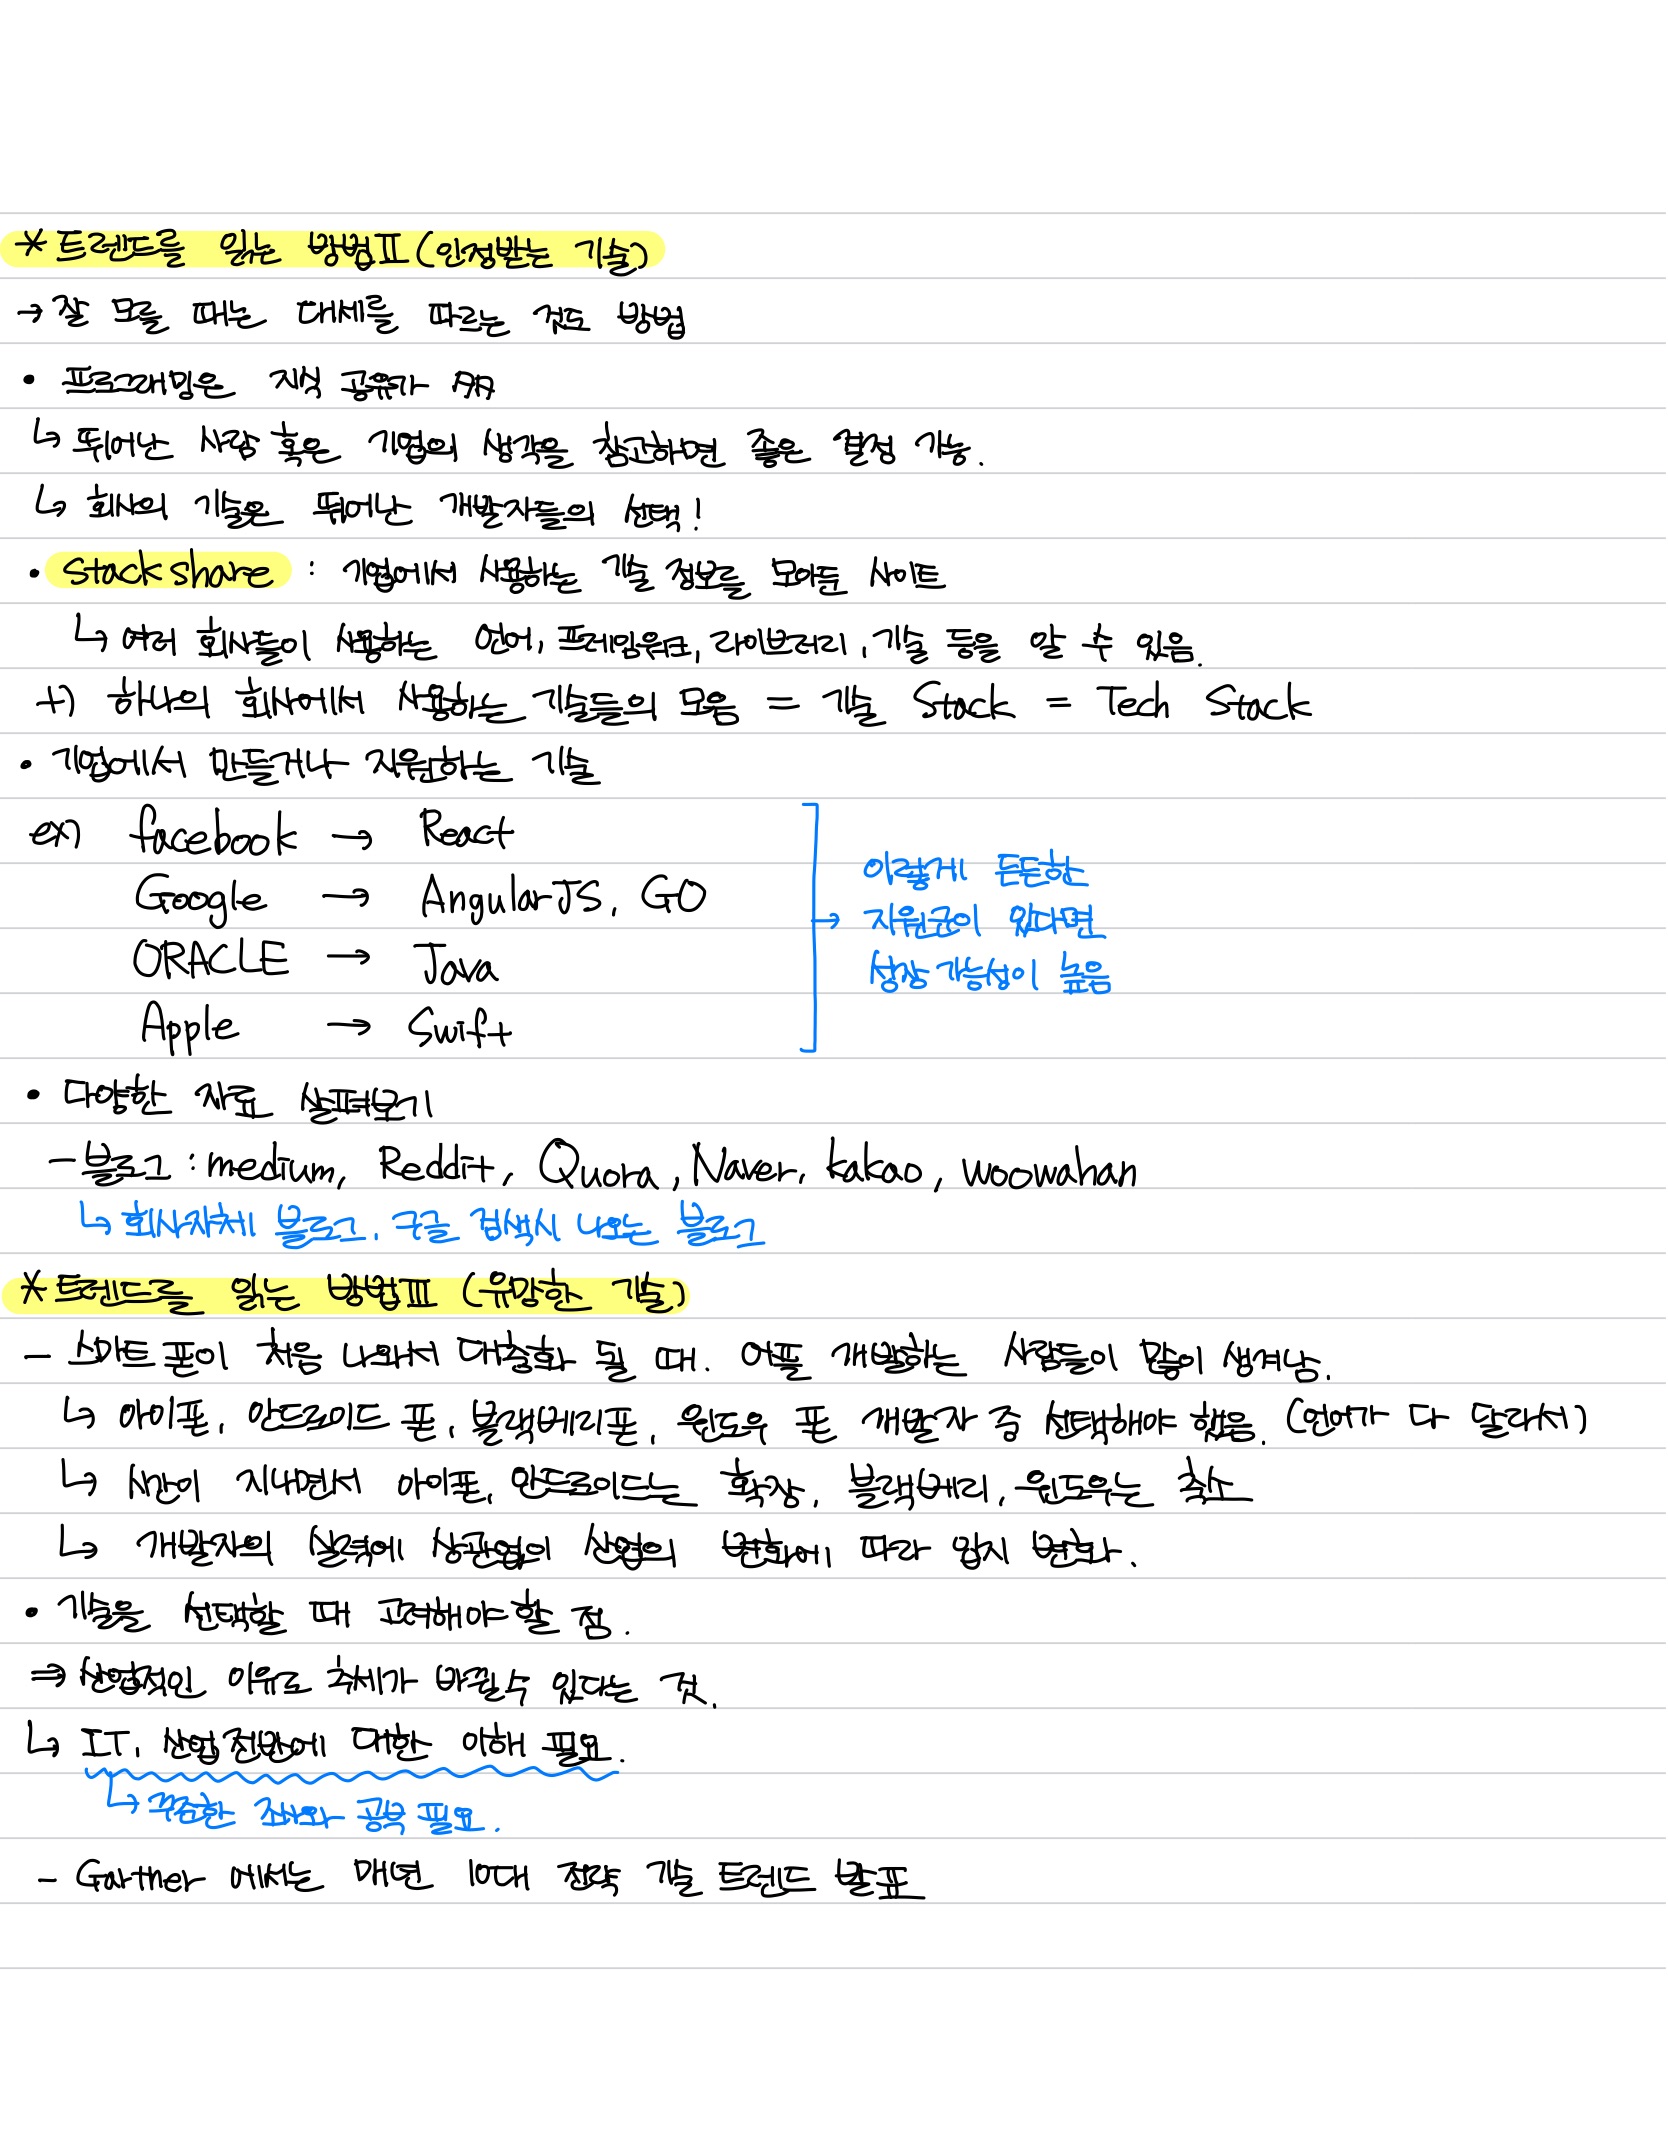 * 트렌드를 읽는 방법 II (인정받는 기술)
→ 잘 모를 때는 대세를 따르는 것도 방법
• 프로그래밍은 지식 공유가
↳ 뛰어난 사람 혹은 기업의 생각을 참고하면 좋은 결정 가능.
↳ 회사의 기술은 뛰어난 개발자들의 선택!
• Stack share : 기업에서 사용하는 기술 정보를 모아둔 사이트
↳ 여러 회사들이 사용하는 언어, 프레임워크, 라이브러리, 기술 등을 알 수 있음.
+) 하나의 회사에서 사용하는 기술들의 모음 = 기술 Stack = Tech Stack
• 기업에서 만들거나 지원하는 기술
ex) facebook → React
Google → AngularJS, GO
ORACLE → Java
Apple → Swift
이렇게 든든한
→ 지원군이 있다면
성장 가능성이 높음
• 다양한 자료 살펴보기
- 블로그 : medium, Reddit, Quora, Naver, kakao, woowahan
↳ 회사자체 블로그, 구글 검색시 나오는 블로그
* 트렌드를 읽는 방법 III (유망한 기술)
- 스마트 폰이 처음 나와서 대중화 될 때. 어플 개발하는 사람들이 많이 생겨남.
↳ 아이폰, 안드로이드 폰, 블랙베리폰, 윈도우 폰 개발자 중 선택해야 했음. (언어가 다 달라서)
↳ 시간이 지내면서 아이폰, 안드로이드는 확장, 블랙베리, 윈도우는 축소
↳ 개발자의 실력에 상관없이 산업의 변화에 따라 입지 변화.
• 기술을 선택할 때 고려해야 할 점.
⇒ 산업적인 이유로 추세가 바뀔 수 있다는 것.
↳ IT, 산업 전반에 대한 이해 필요.
↳ 꾸준한 조사와 공부 필요.
- Gartner 에서는 매년 10대 전략 기술 트렌드 발표